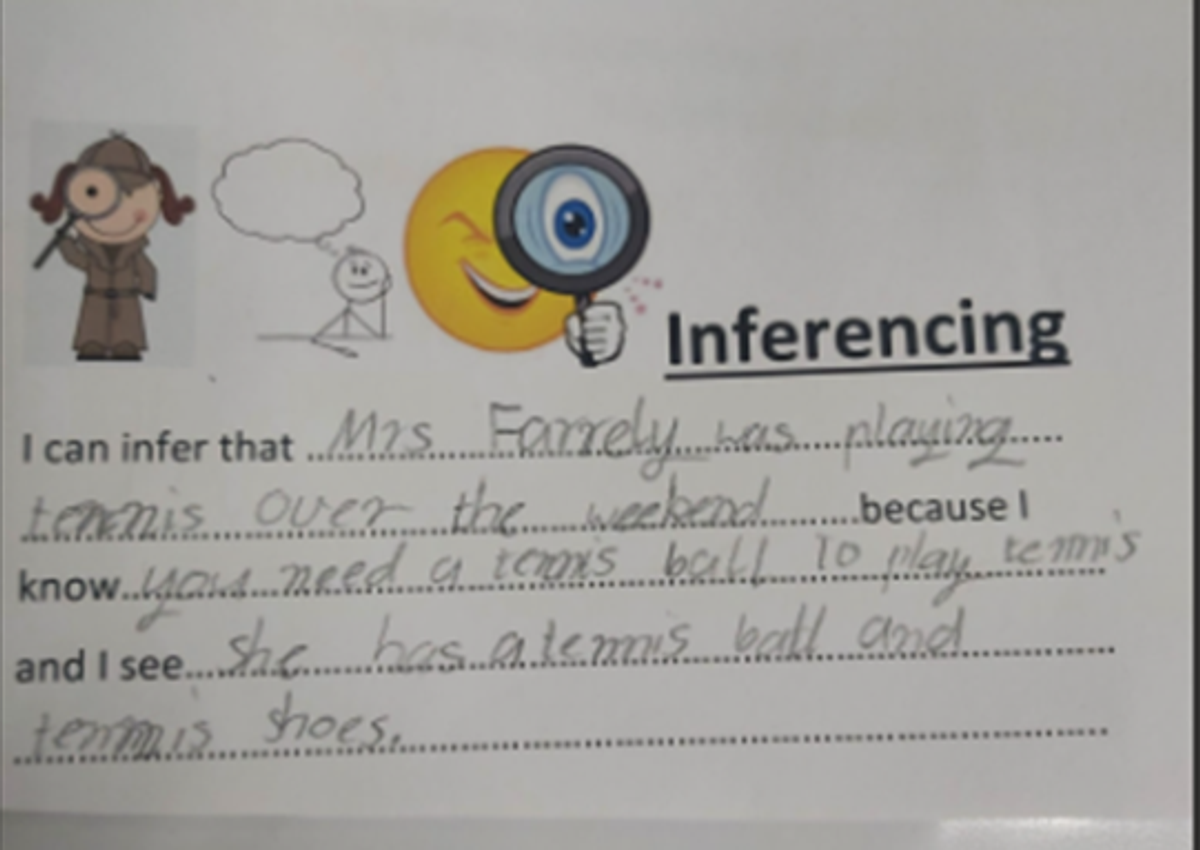 Inferencing
I can infer that Mrs Farrely was playing
tennis over the weekend because I
know you need a tennis ball to play tennis
and I see she has a tennis ball and
tennis shoes.